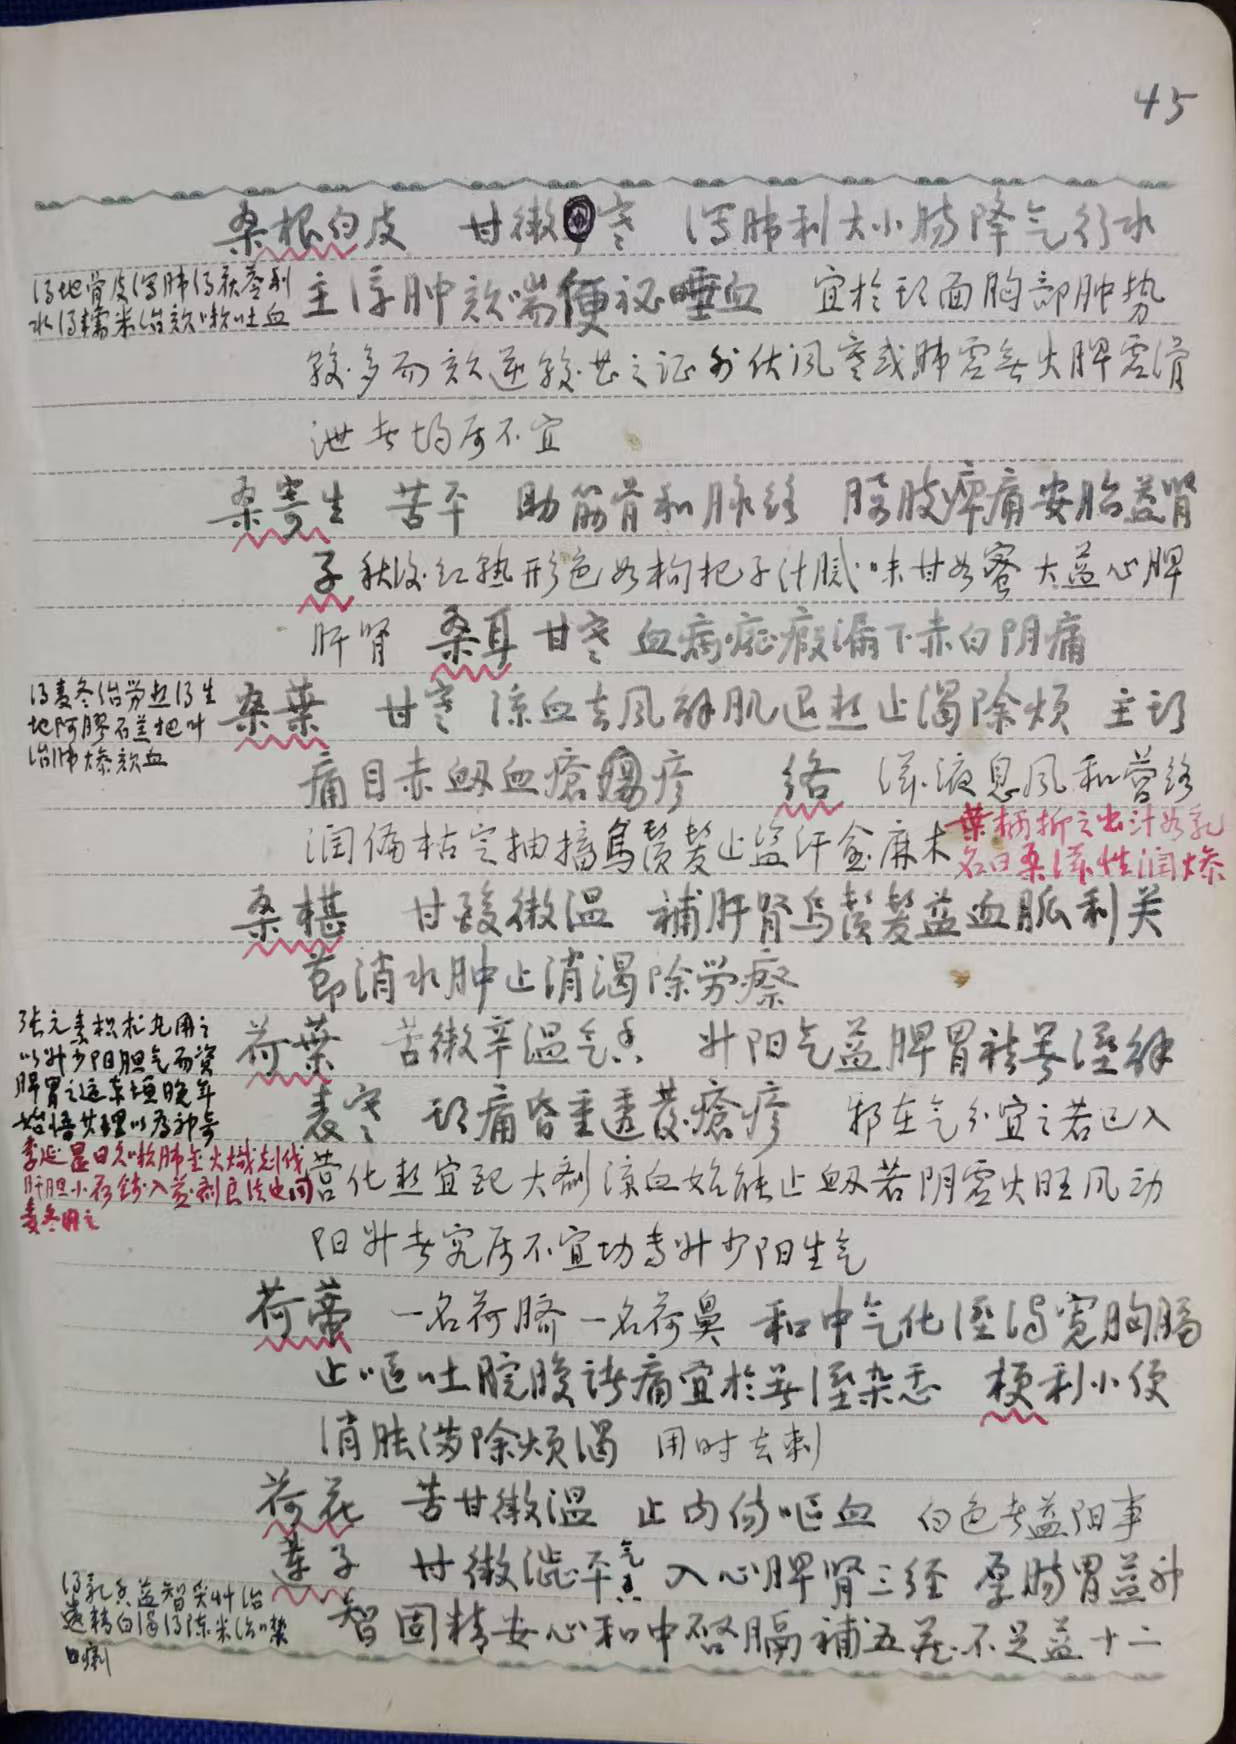 45
桑根白皮 甘微寒 泻肺利大小肠降气行水
得地骨皮泻肺得茯苓利
水得糯米治欬嗽吐血
主浮肿欬喘便祕唾血 宜於头面胸部肿势
较多而欬逆较甚之证外伏风寒或肺虚无火脾虚滑
泄者均属不宜
桑寄生 苦平 助筋骨和脉络 腰肢痹痛安胎益肾
子秋后红熟形色如枸杞子汁腻味甘如蜜大益心脾
肝肾 桑耳 甘寒 血病癥瘕漏下赤白阴痛
得麦冬治劳热得生
地阿膠石羔杷叶
治肺燥欬血
桑葉 甘寒 凉血去风解肌退热止渴除烦 主头
痛目赤衂血瘡瘍疹 络 滋液息风和营络
润偏枯定抽搐烏鬚髮止盗汗 麻木
葉柄折之出汁如乳
名曰桑 性润燥
桑椹 甘酸微温 補肝肾乌鬚髮益血脈利关
節消水肿止消渴除劳瘵
张元素枳朮丸用之
以升少阳胆气而资
脾胃之运东垣晚年
始悟其理以为神奇
荷葉 苦微辛温气香 升阳气益脾胃祛暑溼解
表寒 头痛昏重透發瘡疹 邪在气分宜之若已入
久嗽肺金火熾
肝胆小荷 入 剂良法也同
麦冬用之
营化热宜配大剂凉血始能止衂若阴虚火旺风动
阳升者究属不宜功专升少阳生气
荷蒂 一名荷脐一名荷鼻 和中气化溼浊宽胸膈
止嘔吐脘腹诸痛宜於暑溼杂恙 梗利小便
消胀满除烦渴 用时去刺
荷花 苦甘微温 止内伤呕血 白色者益阳事
莲子 甘微澁平气香 入心脾肾三经 厚肠胃益神
得乳香益智 治
遗精白濁得陈米治噤
口痢
智固精安心和中啓膈補五藏不足益十二